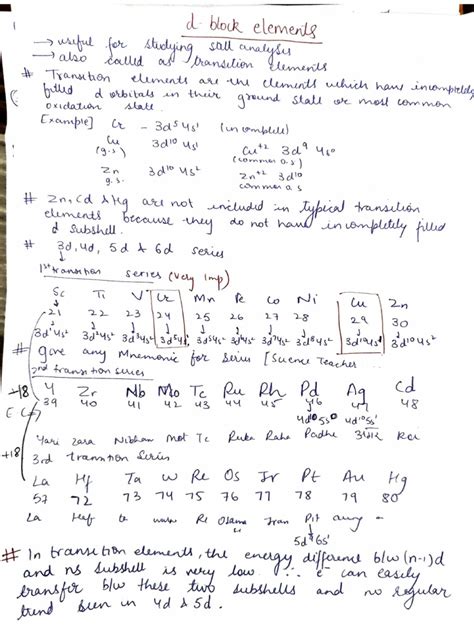 d-block elements
→ useful for studying salt analysis
→ also called as transition elements
# Transition elements are the elements which have incompletely
filled d orbitals in their ground state or most common
oxidation state.
[Example] Cr - 3d⁵4s¹ (incomplete)
Cu 3d¹⁰ 4s¹ Cu⁺² 3d⁹ 4s⁰
(g.s) (common o.s)
Zn 3d¹⁰ 4s² Zn⁺² 3d¹⁰
g.s. common o.s
# Zn, Cd & Hg are not included in typical transition
elements because they do not have incompletely filled
d subshell.
# 3d, 4d, 5d & 6d series
1st transition series (Very Imp)
Sc Ti V Cr Mn Fe Co Ni Cu Zn
21 22 23 24 25 26 27 28 29 30
3d¹4s² 3d²4s² 3d³4s² 3d⁵4s¹ 3d¹⁰4s¹ 3d¹⁰4s²
# give any Mnemonic for series [Science Teacher
2nd transition series
+18 Y Zr Nb Mo Tc Ru Rh Pd Ag Cd
39 40 41 42 43 44 45 46 47 48
4d¹⁰5s⁰ 4d¹⁰5s¹
Yari Zara Mot Tc Ruka Raha Padhe
+18 3rd Transition Series
La Hf Ta W Re Os Ir Pt Au Hg
57 72 73 74 75 76 77 78 79 80
La Re Osama Iran Pit
5d⁹6s¹
# In transition elements, the energy difference b/w (n-1)d
and ns subshell is very low ∴ e⁻ can easily
transfer b/w these two subshells and no regular
trend seen in 4d & 5d.